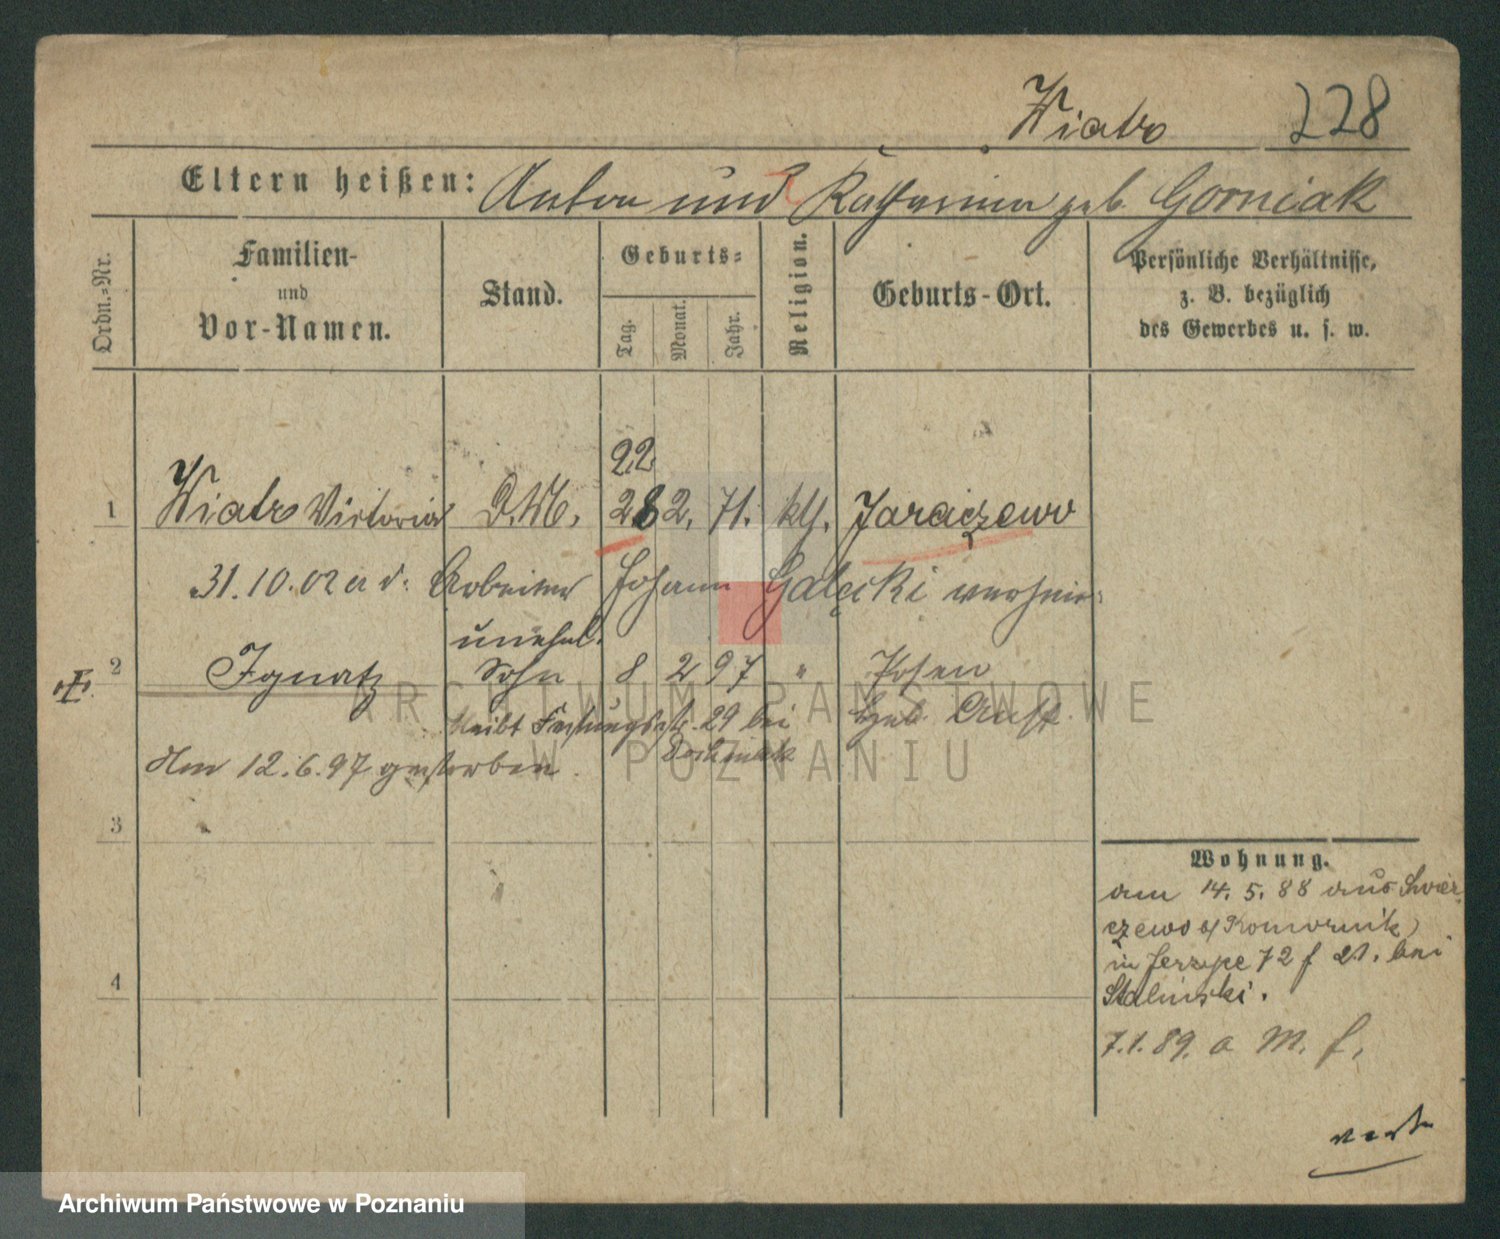 Wiatr 228
Eltern heißen: Anton und Katharina geb. Gorniak
Ordn.-Nr.
Familien-
und
Vor-Namen.
Stand.
Geburts-
Tag.
Monat.
Jahr.
Religion.
Geburts-Ort.
Persönliche Verhältnisse,
z. B. bezüglich
des Gewerbes u. s. w.
22
1 Wiatr Victoria D.M. 28 2. 71. kth. Jaraczewo
31.10.02 a d. Arbeiter Johann Galęcki
unehel.
2 Ignatz Sohn 8 2 97 " Posen
bleibt Festungsstr. 29 bei Geb. Anst.
Am 12.6.97 gestorben.
3
4
Wohnung.
am 14.5.88 aus Swier
czewo Komornik
in Jerzyce 72 f 21. bei
Stalinski.
7.1.89. a M. f.
ARCHIWUM PAŃSTWOWE
W POZNANIU
Archiwum Państwowe w Poznaniu